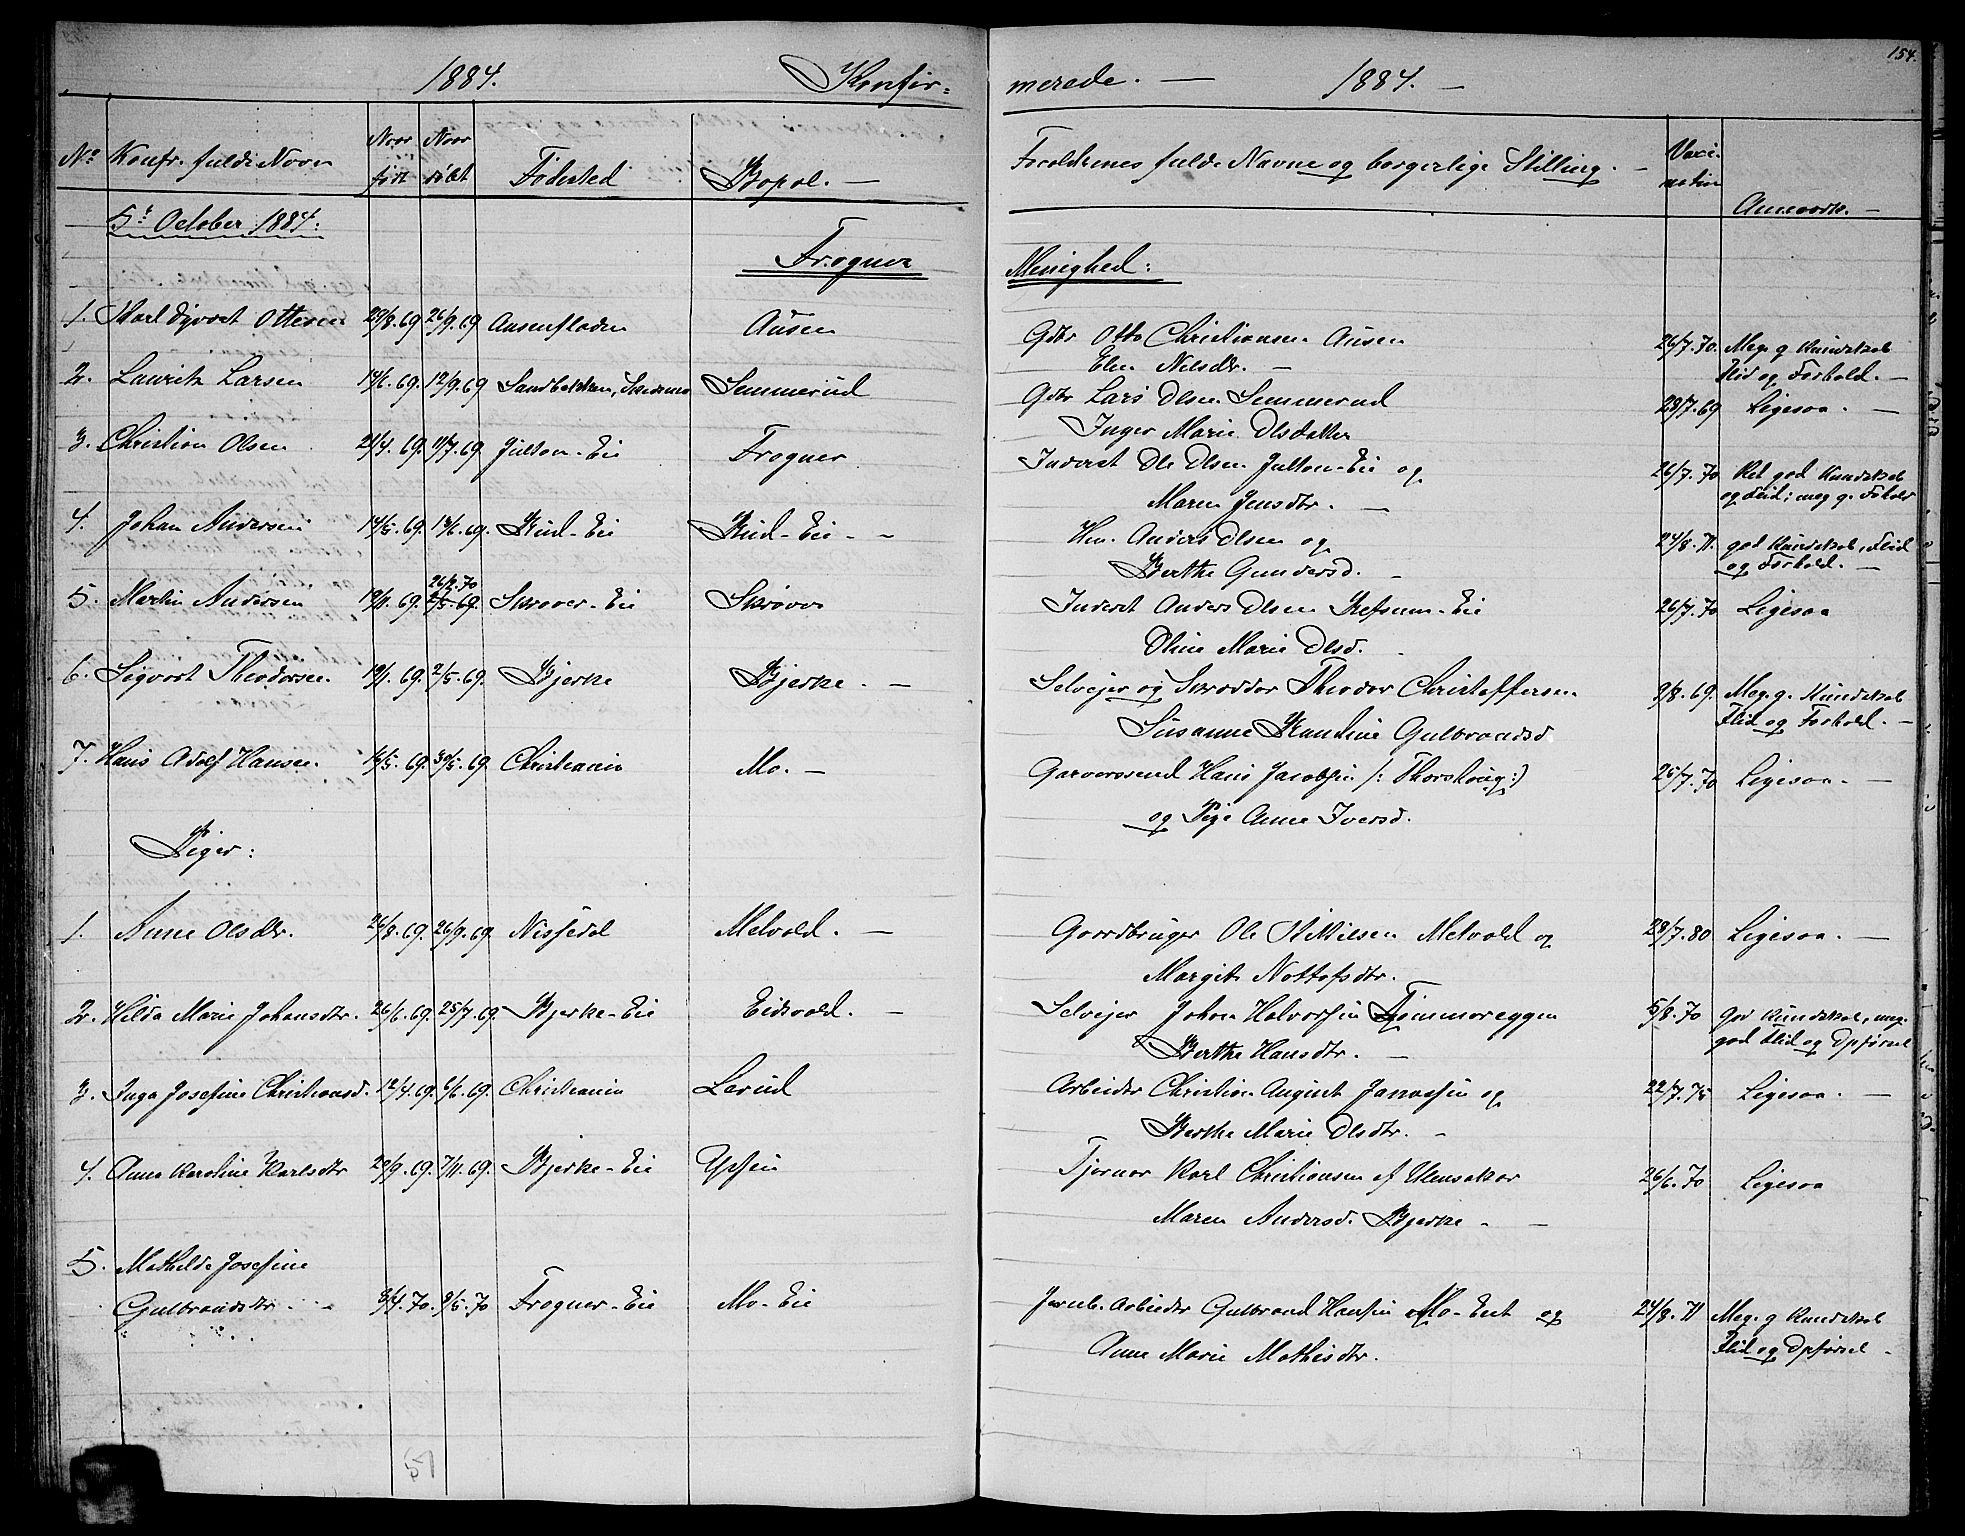 154.
1884. Konfir= merede. — 1884. —
No Konfr. fulde Navn Naar født Naar døbt Fødested Bopæl. — Forældrenes fulde Navne og borgerlige Stilling. — Vaxi-nation Anmærk. —
5te October 1884:
Frogner Menighed:
1. Karl Ottersen 29/8.69 26/9.69 Ausen Gdbr Otto Christiansen Ausen 26/7.70. Meg. g Kundskab
Elen Nilsdtr. — Flid og Forhold. —
2. Lauritz Larsen 14/6.69. 12/9.69 Sandbækken, Skedsmo Semmerud Gdbr Lars Olsen Semmerud 28/7.69 Ligesaa. —
Inger Marie Olsdatter
3. Christian Olsen 21/4.69. 11/7.69. Julton-Eie Frogner Inderst Ole Olsen Julton-Eie og 26/7.70 Ret god Kundskab
Maren Jensdtr. — og Flid; meg g. Forhold
4. Johan Andersen 14/5.69. 13/6.69. Rud-Eie Rud-Eie - - Hm. Anders Olsen og 24/8.71. god Kundskab, Flid
Berthe Gundersd. - og Forhold. —
26/2.70
5. Martin Andersen 19/11.69. 2/5.69. Skrøver-Eie Skrøver Inderst Anders Olsen Refsum-Eie 26/7.70 Ligesaa
Oline Marie Olsd. -
6. Sigvart Theodorsen. 19/1.69. 2/5.69. Bjerke Bjerke. — Selvejer og Skrædder Theodor Christoffersen 3/8.69. Meg. g. Kundskab
Susanne Gulbrandsd Flid og Forhold. —
7. Hans Adolf Hansen. 16/5.69. 30/5.69. Christiania Mo. — Garversvend Hans Jacobsen /: Thorshaug :/ 25/7.70 Ligesaa. —
og Pige Anne Iversd.
Piger:
1. Anne Olsdtr. 26/8.69. 26/9.69. Nissedal Melvold. — Gaardbruger Ole Melvold og 28/7.80 Ligesaa. —
Margit Nottofsdtr. —
2. Hilda Marie Johansdtr. 26/6.69. 25/7.69. Bjerke-Eie Eidsvold. — Selvejer Johan Halvorsen Tømmereggen 5/8.70 God Kundskab, meg.
Berthe Hansdtr. — god Flid og Opførsel
3. Inga Josefine Christiansd. 12/4.69. 6/6.69. Christiania Lerud Arbeider Christian August og 22/7.75 Ligesaa. —
Berthe Marie Olsdtr. -
4. Anna Karoline Karlsdtr 29/9.69. 7/11.69. Bjerke-Eie Tjener Karl Christiansen af Ullensaker 26/6.70 Ligesaa
Maren Andersd. Bjerke - —
5. Mathilde Josefine
Gulbrandsdtr. - - 8/4.70. 9/5.70 Frogner-Eie Mo-Eie Jernb. Arbeider Gulbrand Hansen Mo-Eiet og 24/8.71 Meg. g Kundskab
Anne Marie Mathisdtr. Flid og Opførsel -
57